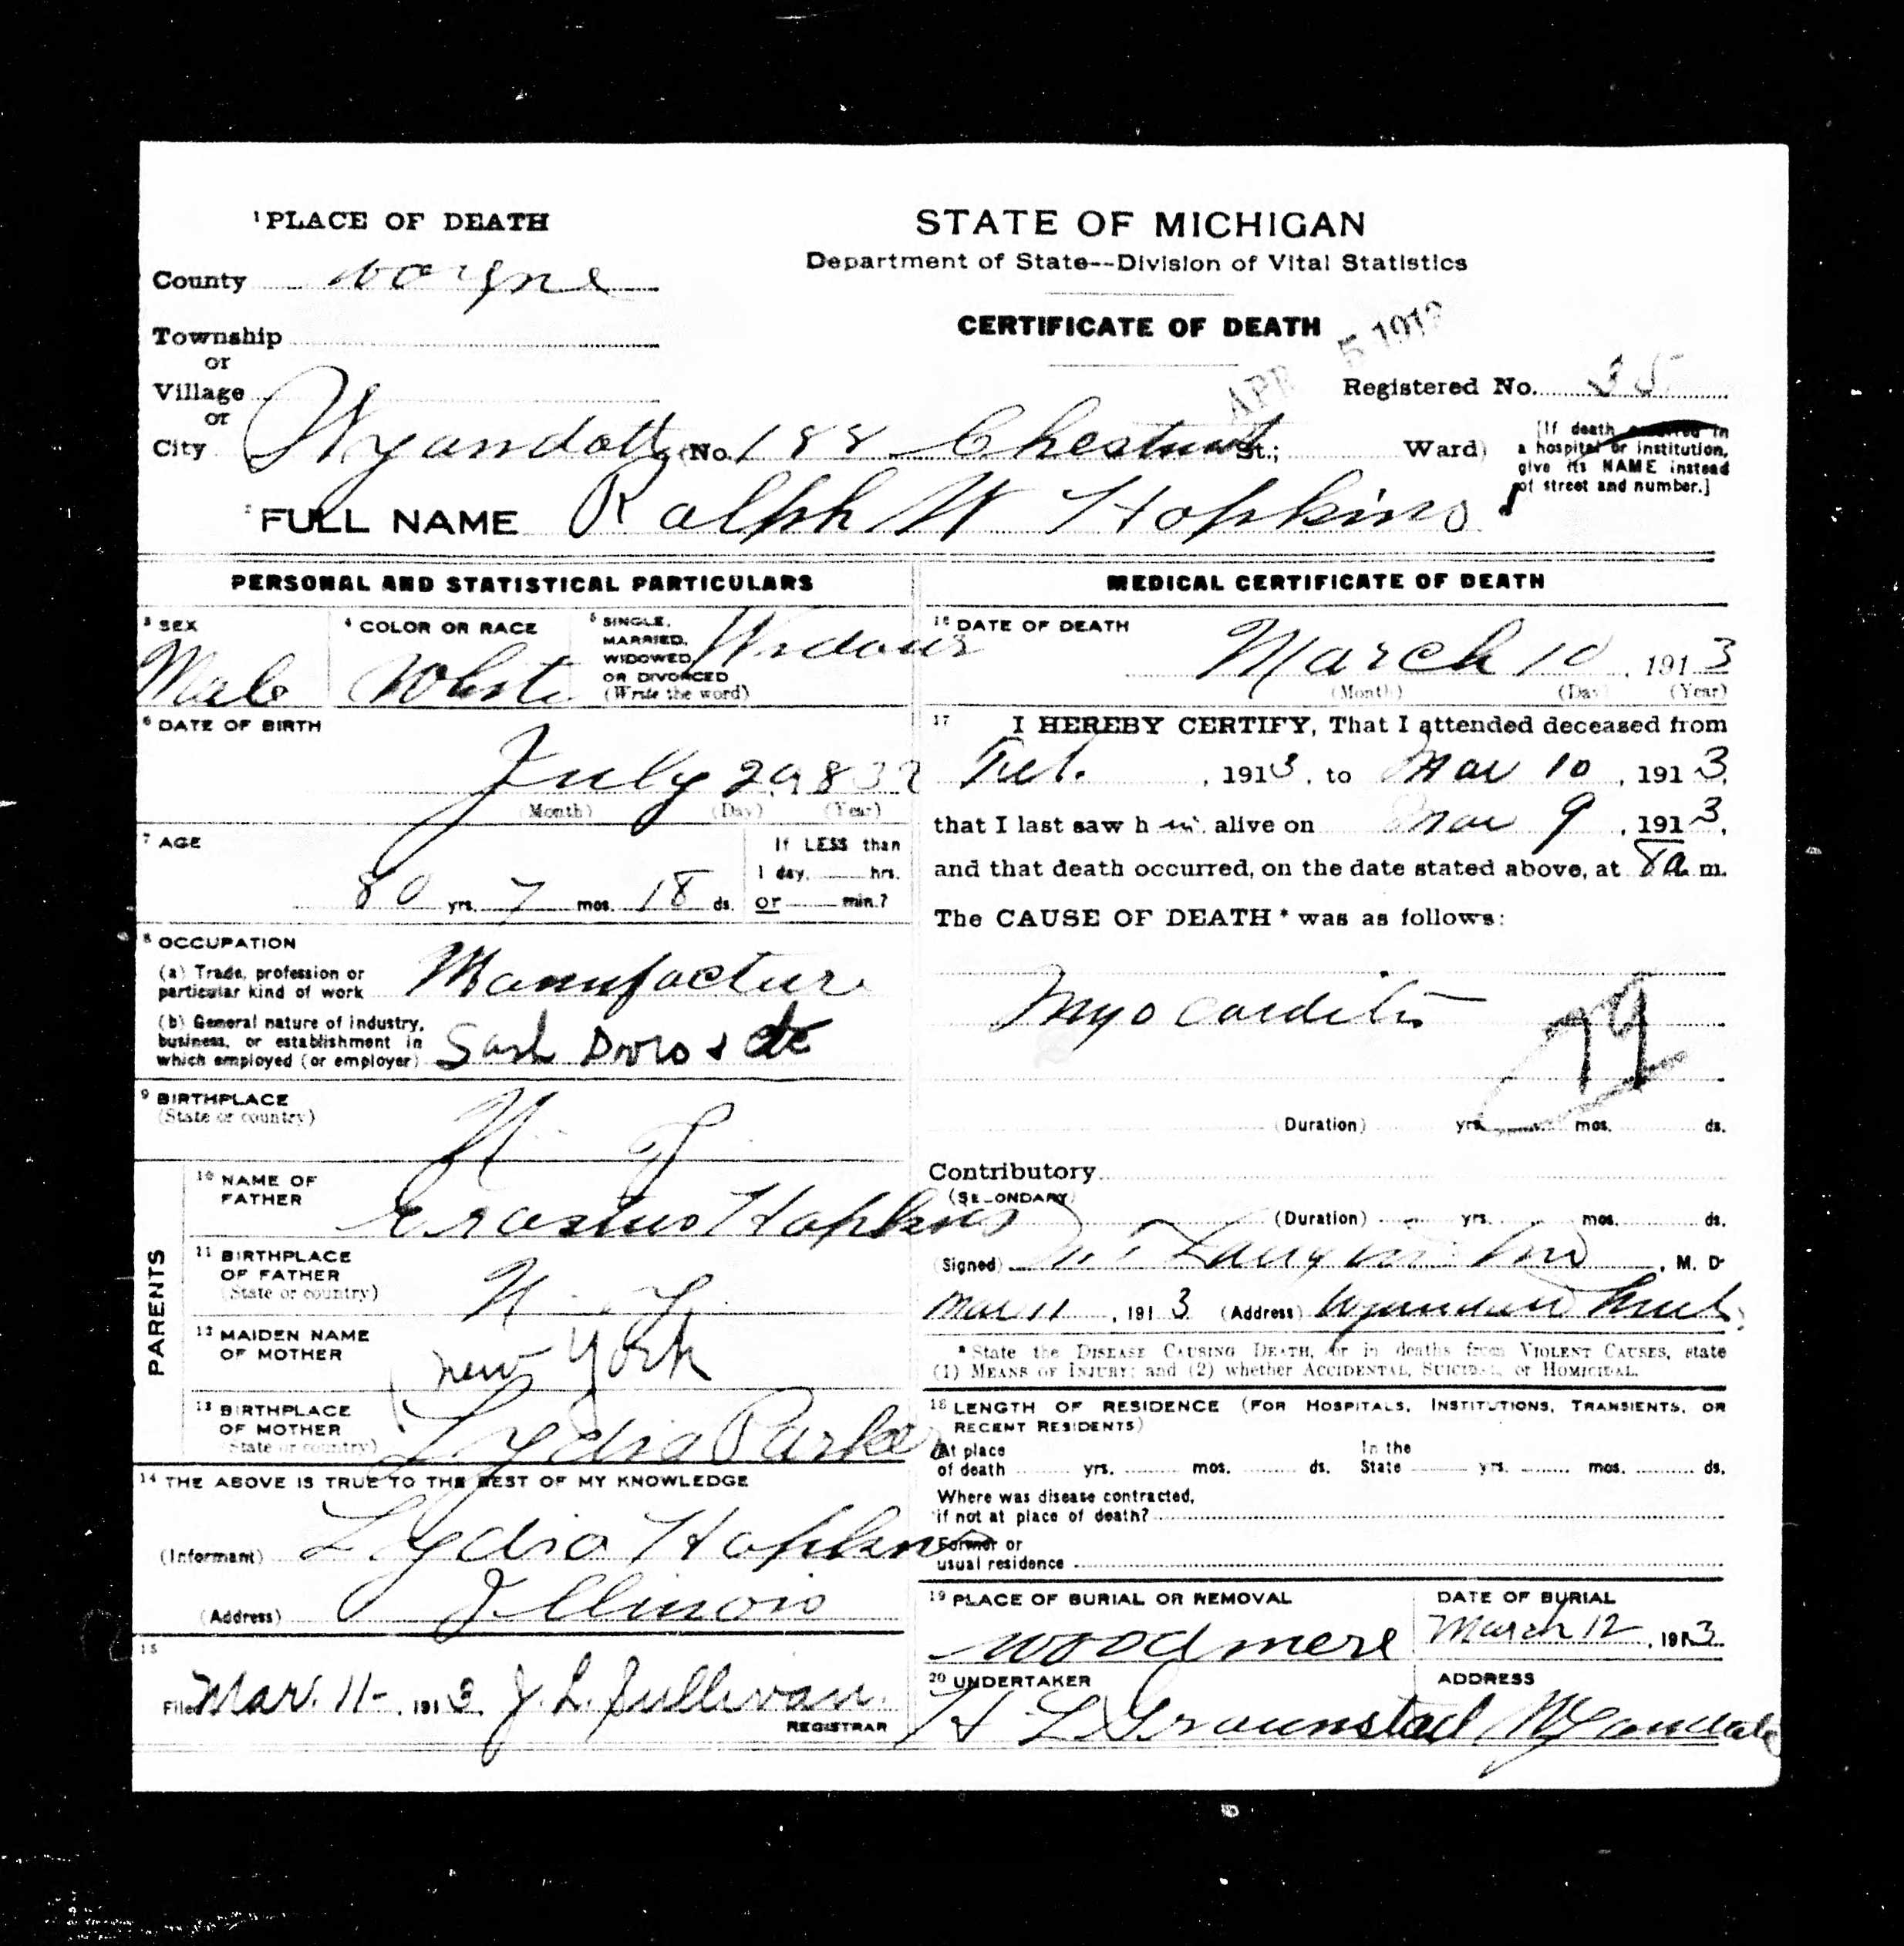 1 PLACE OF DEATH
STATE OF MICHIGAN
Department of State--Division of Vital Statistics
County Wayne
CERTIFICATE OF DEATH
APR 5 1913
Township
or
Village
or
Registered No. 35
City Wyandotte (No. 188 Chestnut St.; Ward)
[If death occurred in
a hospital or institution,
give its NAME instead
of street and number.]
2 FULL NAME Ralph W Hopkins
PERSONAL AND STATISTICAL PARTICULARS
3 SEX
Male
4 COLOR OR RACE
White
5 SINGLE,
MARRIED,
WIDOWED,
OR DIVORCED
(Write the word)
6 DATE OF BIRTH
July 29 1832
(Month) (Day) (Year)
7 AGE
80 yrs. 7 mos. 18 ds.
If LESS than
1 day, hrs.
or min.?
8 OCCUPATION
(a) Trade, profession or
particular kind of work Manufacture
(b) General nature of industry,
business, or establishment in
which employed (or employer) Sash Doors & etc
9 BIRTHPLACE
(State or country)
N. Y.
PARENTS
10 NAME OF
FATHER
Erastus Hopkins
11 BIRTHPLACE
OF FATHER
(State or country)
N. Y.
12 MAIDEN NAME
OF MOTHER
new York
13 BIRTHPLACE
OF MOTHER
(State or country)
Lydia Parker
14 THE ABOVE IS TRUE TO THE BEST OF MY KNOWLEDGE
(Informant) Lydia Hopkins
(Address) Illinois
15
Filed Mar. 11-, 1913. J. L. Sullivan.
REGISTRAR
MEDICAL CERTIFICATE OF DEATH
16 DATE OF DEATH
March 10, 1913
(Month) (Day) (Year)
17 I HEREBY CERTIFY, That I attended deceased from
Feb., 1913, to Mar 10, 1913,
that I last saw him alive on Mar 9, 1913,
and that death occurred, on the date stated above, at 8 a. m.
The CAUSE OF DEATH* was as follows:
Myocarditis
79
(Duration) yrs. mos. ds.
Contributory
(SECONDARY)
(Duration) yrs. mos. ds.
(Signed) , M. D.
Mar 11, 1913 (Address) Wyandotte Mich.
* State the DISEASE CAUSING DEATH, or in deaths from VIOLENT CAUSES, state
(1) MEANS OF INJURY; and (2) whether ACCIDENTAL, SUICIDAL, or HOMICIDAL.
18 LENGTH OF RESIDENCE (FOR HOSPITALS, INSTITUTIONS, TRANSIENTS, OR
RECENT RESIDENTS)
At place
of death yrs. mos. ds.
In the
State yrs. mos. ds.
Where was disease contracted,
if not at place of death?
Former or
usual residence
19 PLACE OF BURIAL OR REMOVAL
Woodmere
DATE OF BURIAL
March 12, 1913
20 UNDERTAKER
ADDRESS
H L Wyandotte